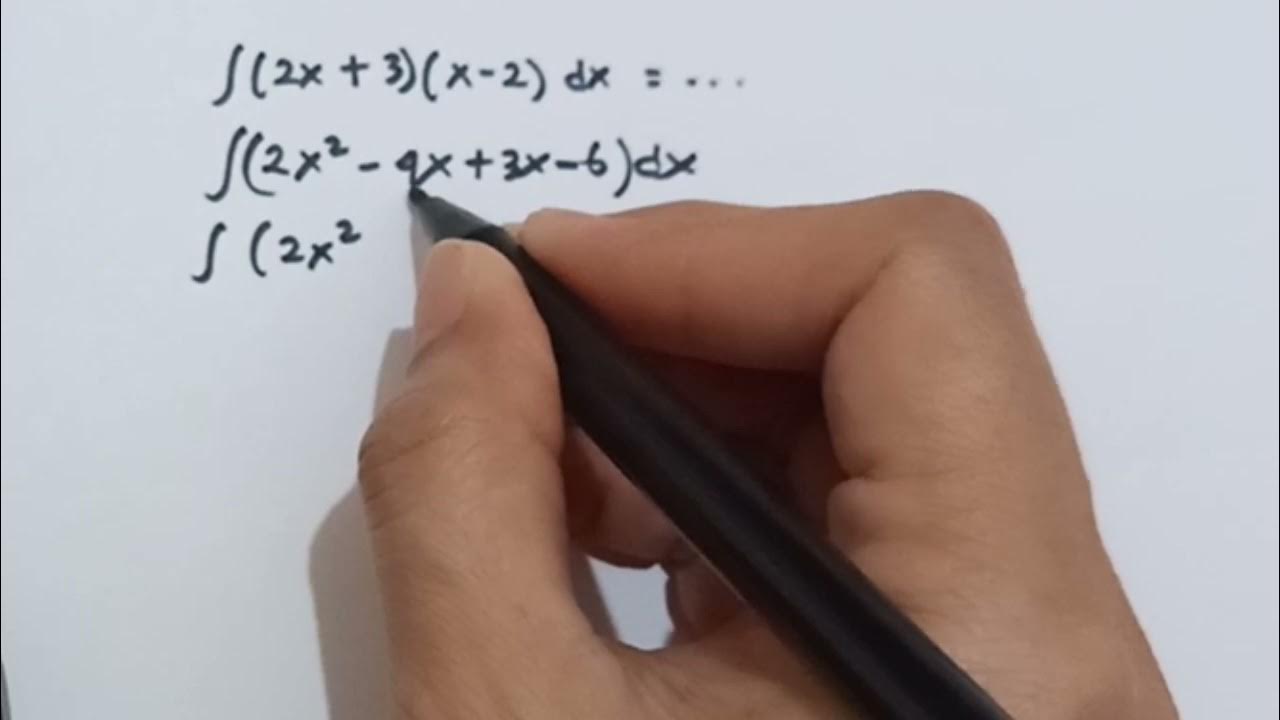 ∫(2x + 3)(x - 2) dx = ...
∫(2x² - 4x + 3x - 6)dx
∫ (2x²